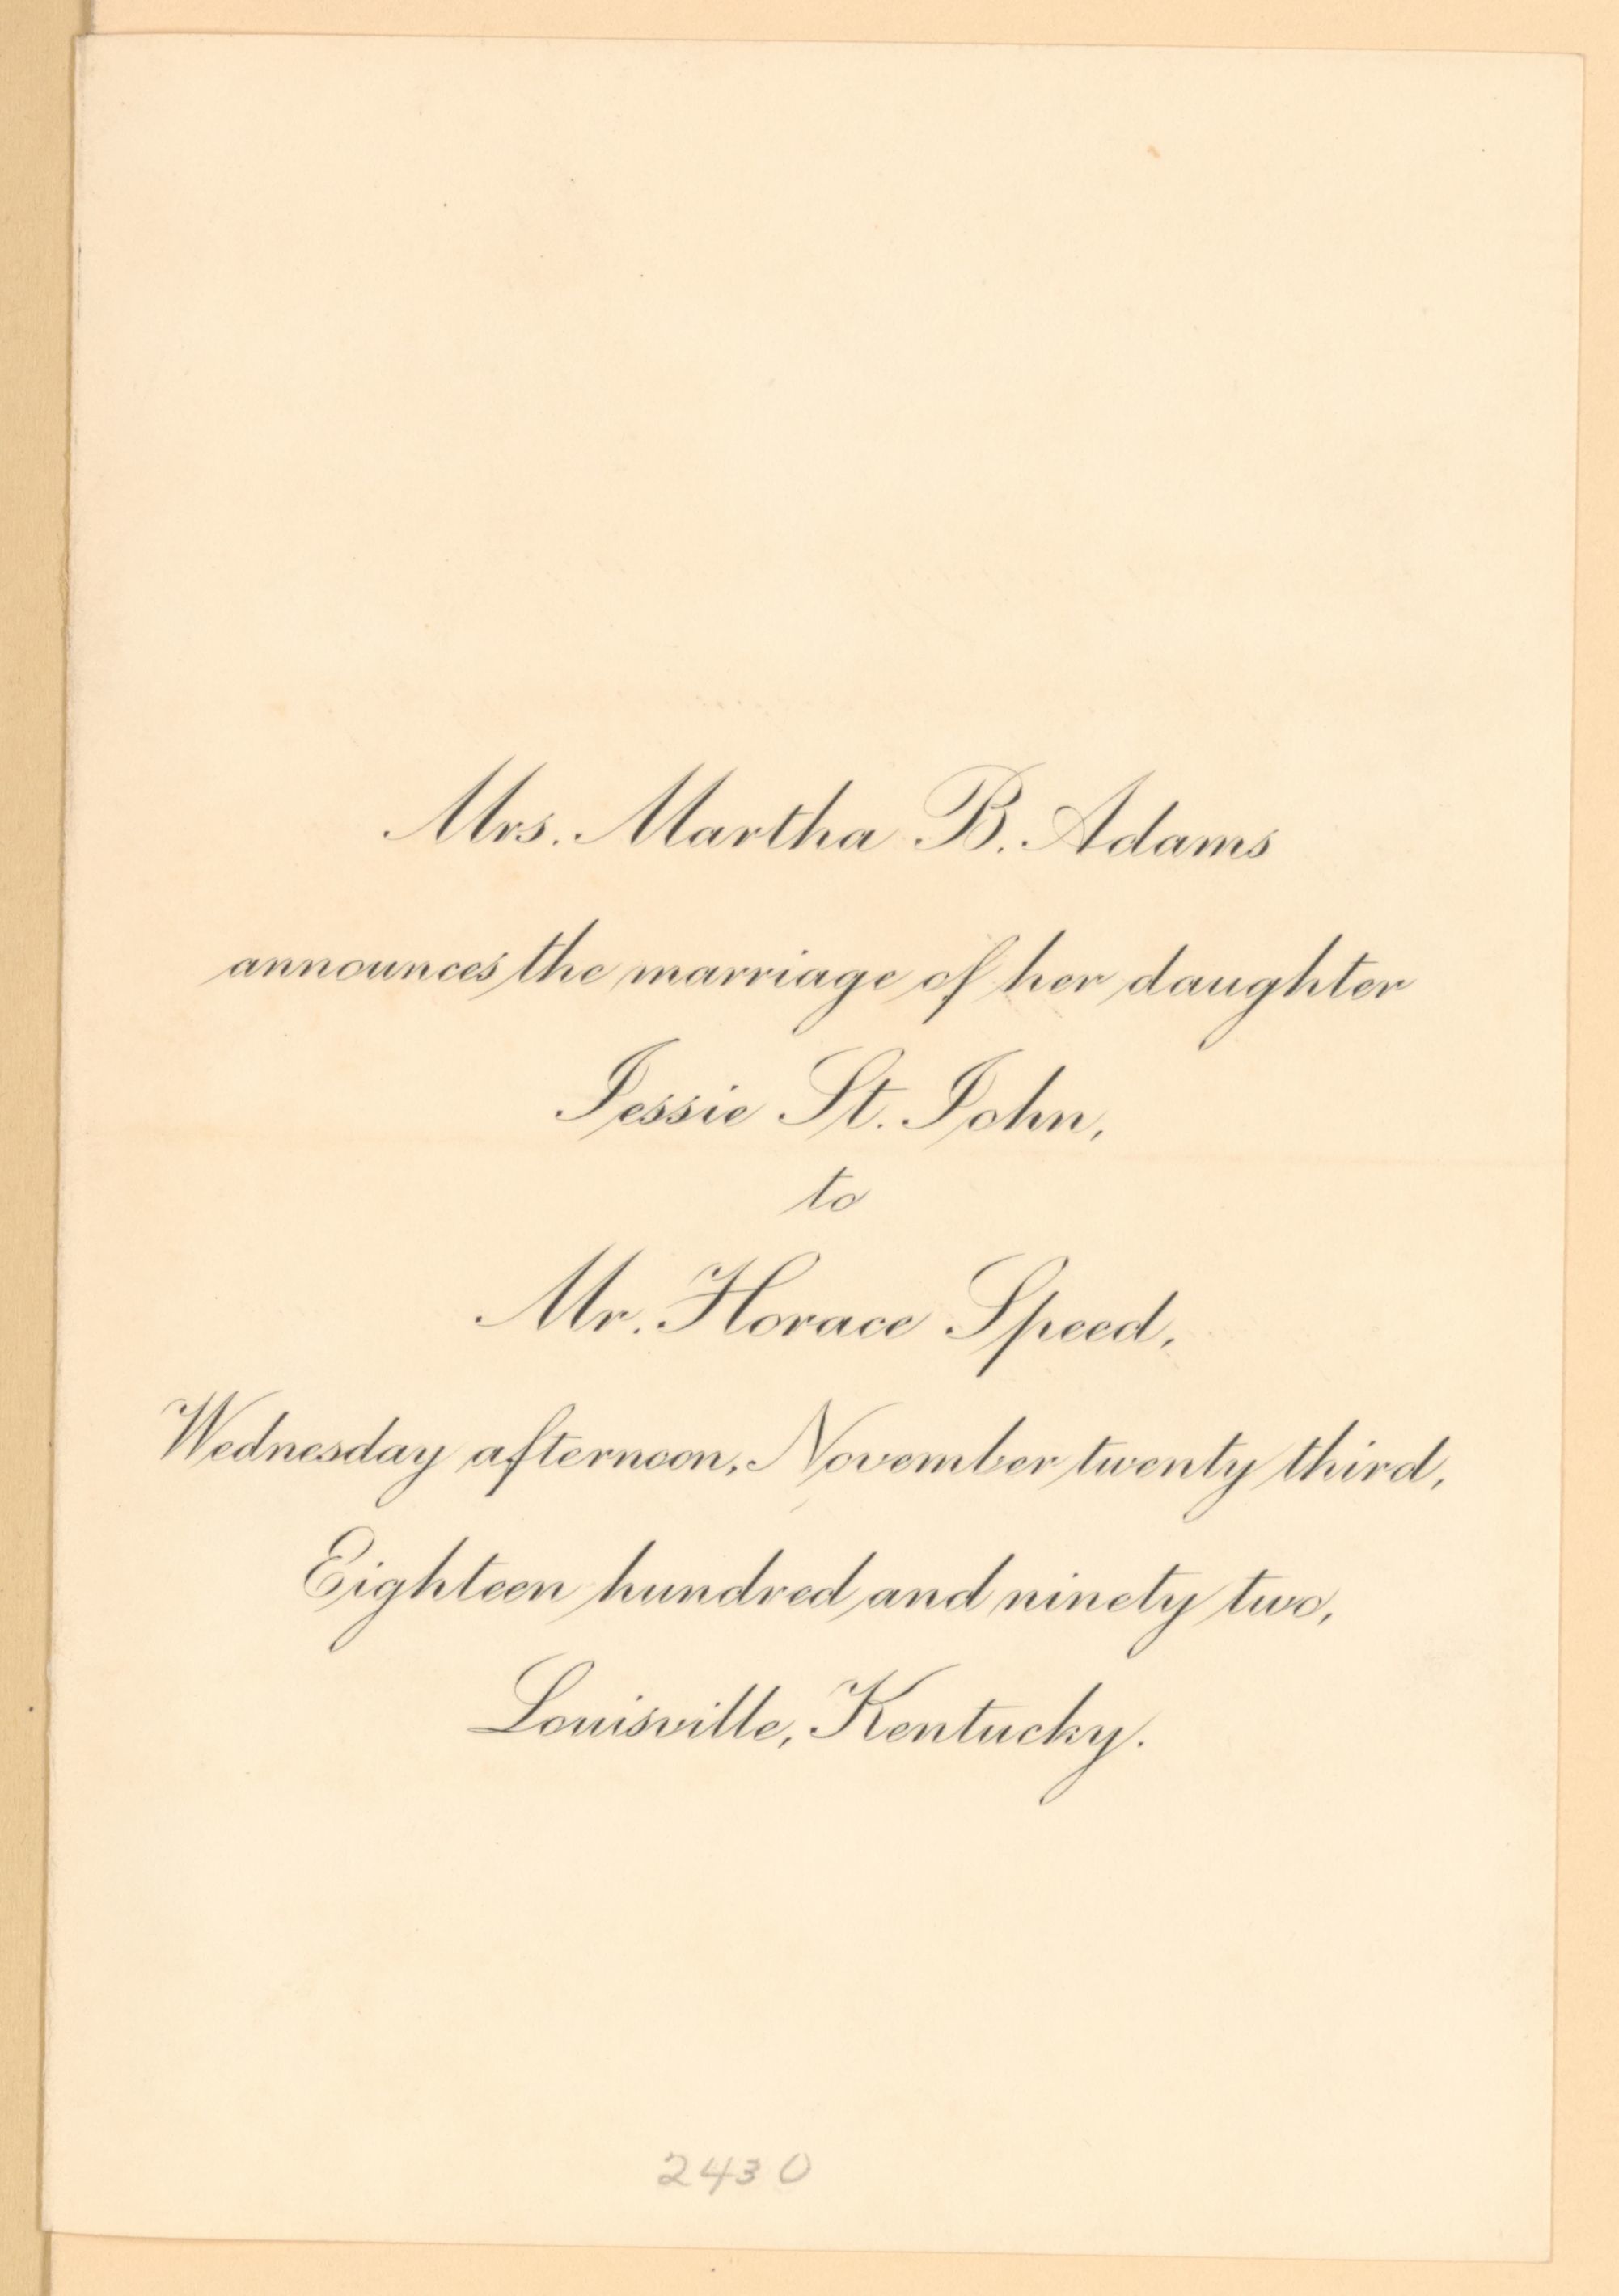 Mrs. Martha B. Adams
announces the marriage of her daughter
Jessie St. John,
to
Mr. Horace Speed,
Wednesday afternoon, November twenty third,
Eighteen hundred and ninety two,
Louisville, Kentucky.
2430